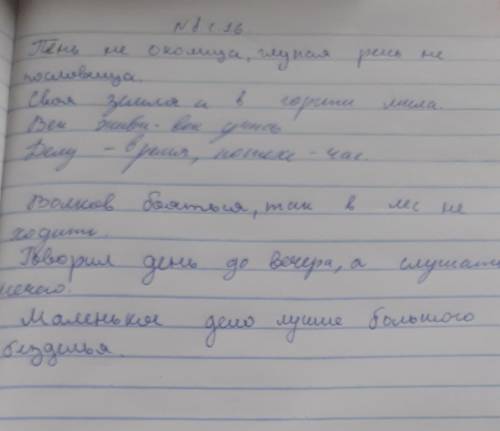 N 8 с 36
Пень не околица, глупая речь не
пословица.
Своя земля и в горсти мила.
Век живи - век учись
Делу - время, потехе - час.
Волков бояться, так в лес не
ходить.
Говорил день до вечера, а слушать
нечего.
Маленькое дело лучше большого
безделья.